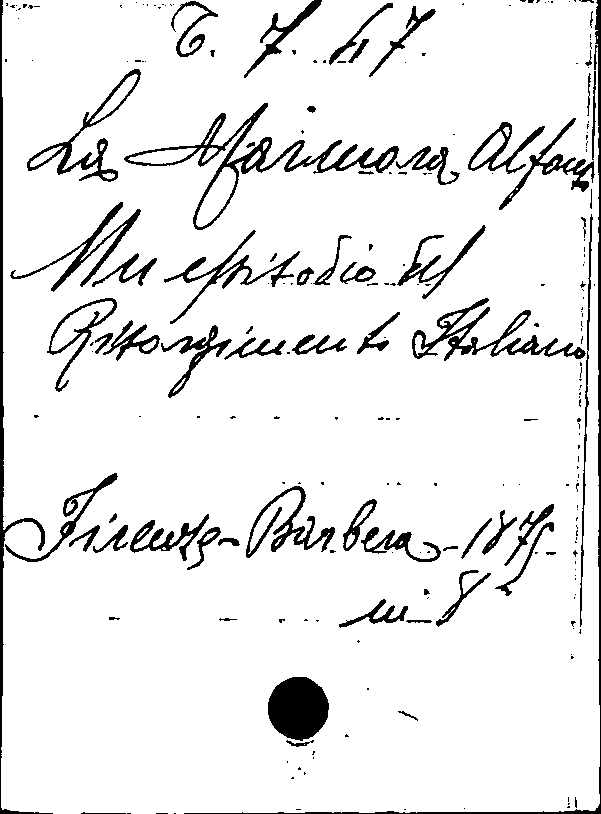 T. 7. 47.
La Marmora Alfonso
Un episodio del
Risorgimento Italiano
Firenze - Barbera - 1875
in 8°